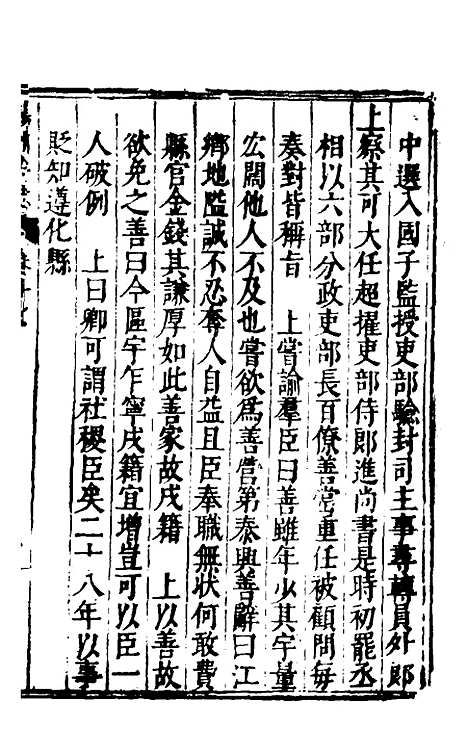 中選入國子監授吏部驗封司主事尋轉員外郎
上察其可大任超擢吏部侍郎進尚書是時初罷丞
相以六部分政吏部長百僚善當重任被顧問每
奏對皆稱旨　上嘗諭羣臣曰善雖年少其宇量
宏闊他人不及也嘗欲為善營第泰興善辭曰江
鄉地監誠不忍奪人自益且臣奉職無狀何敢費
縣官金錢其謙厚如此善家故戍籍　上以善故
欲免之善曰今區宇乍寧戍籍宜增豈可以臣一
人破例　上曰卿可謂社稷臣矣二十八年以事
貶知遵化縣